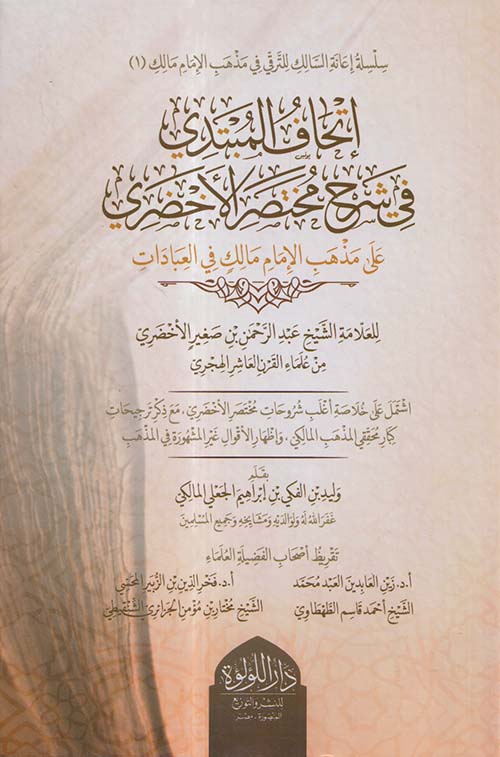 سِلْسِلَةُ إِعَانَةِ السَّالِكِ لِلتَّرَقِّي فِي مَذْهَبِ الإِمَامِ مَالِكٍ (١)
إِتْحَافُ المُبْتَدِي
فِي شَرْحِ مُخْتَصَرِ الأَخْضَرِيِّ
عَلَى مَذْهَبِ الإِمَامِ مَالِكٍ فِي العِبَادَاتِ
لِلعَلَّامَةِ الشَّيْخِ عَبْدِ الرَّحْمَنِ بْنِ صَغِيرٍ الأَخْضَرِيِّ
مِنْ عُلَمَاءِ القَرْنِ العَاشِرِ الهِجْرِيِّ
اشْتَمَلَ عَلَى خُلَاصَةِ أَغْلَبِ شُرُوحَاتِ مُخْتَصَرِ الأَخْضَرِيِّ، مَعَ ذِكْرِ تَرْجِيحَاتِ
كِبَارِ مُحَقِّقِي المَذْهَبِ المَالِكِيِّ، وَإِظْهَارِ الأَقْوَالِ غَيْرِ المَشْهُورَةِ فِي المَذْهَبِ
بِقَلَمِ
وَلِيدِ بْنِ الفَكِيِّ بْنِ إِبْرَاهِيمَ الجَعْلِيِّ المَالِكِيِّ
غَفَرَ اللهُ لَهُ وَلِوَالِدَيْهِ وَمَشَايِخِهِ وَجَمِيعِ المُسْلِمِينَ
تَقْرِيظُ أَصْحَابِ الفَضِيلَةِ العُلَمَاءِ
أ.د. زَيْنِ العَابِدِينَ العَبْد مُحَمَّد أ.د. فَخْرِ الدِّينِ بْنِ الزُّبَيْرِ المحسّي
الشَّيْخِ أَحْمَد قَاسِم الطَّهْطَاوِيّ الشَّيْخِ مُخْتَارِ بْنِ مُؤْمِن الجَزَائِرِيّ الشِّنْقِيطِيّ
دار اللؤلؤة
للنشر والتوزيع
المنصورة - مصر